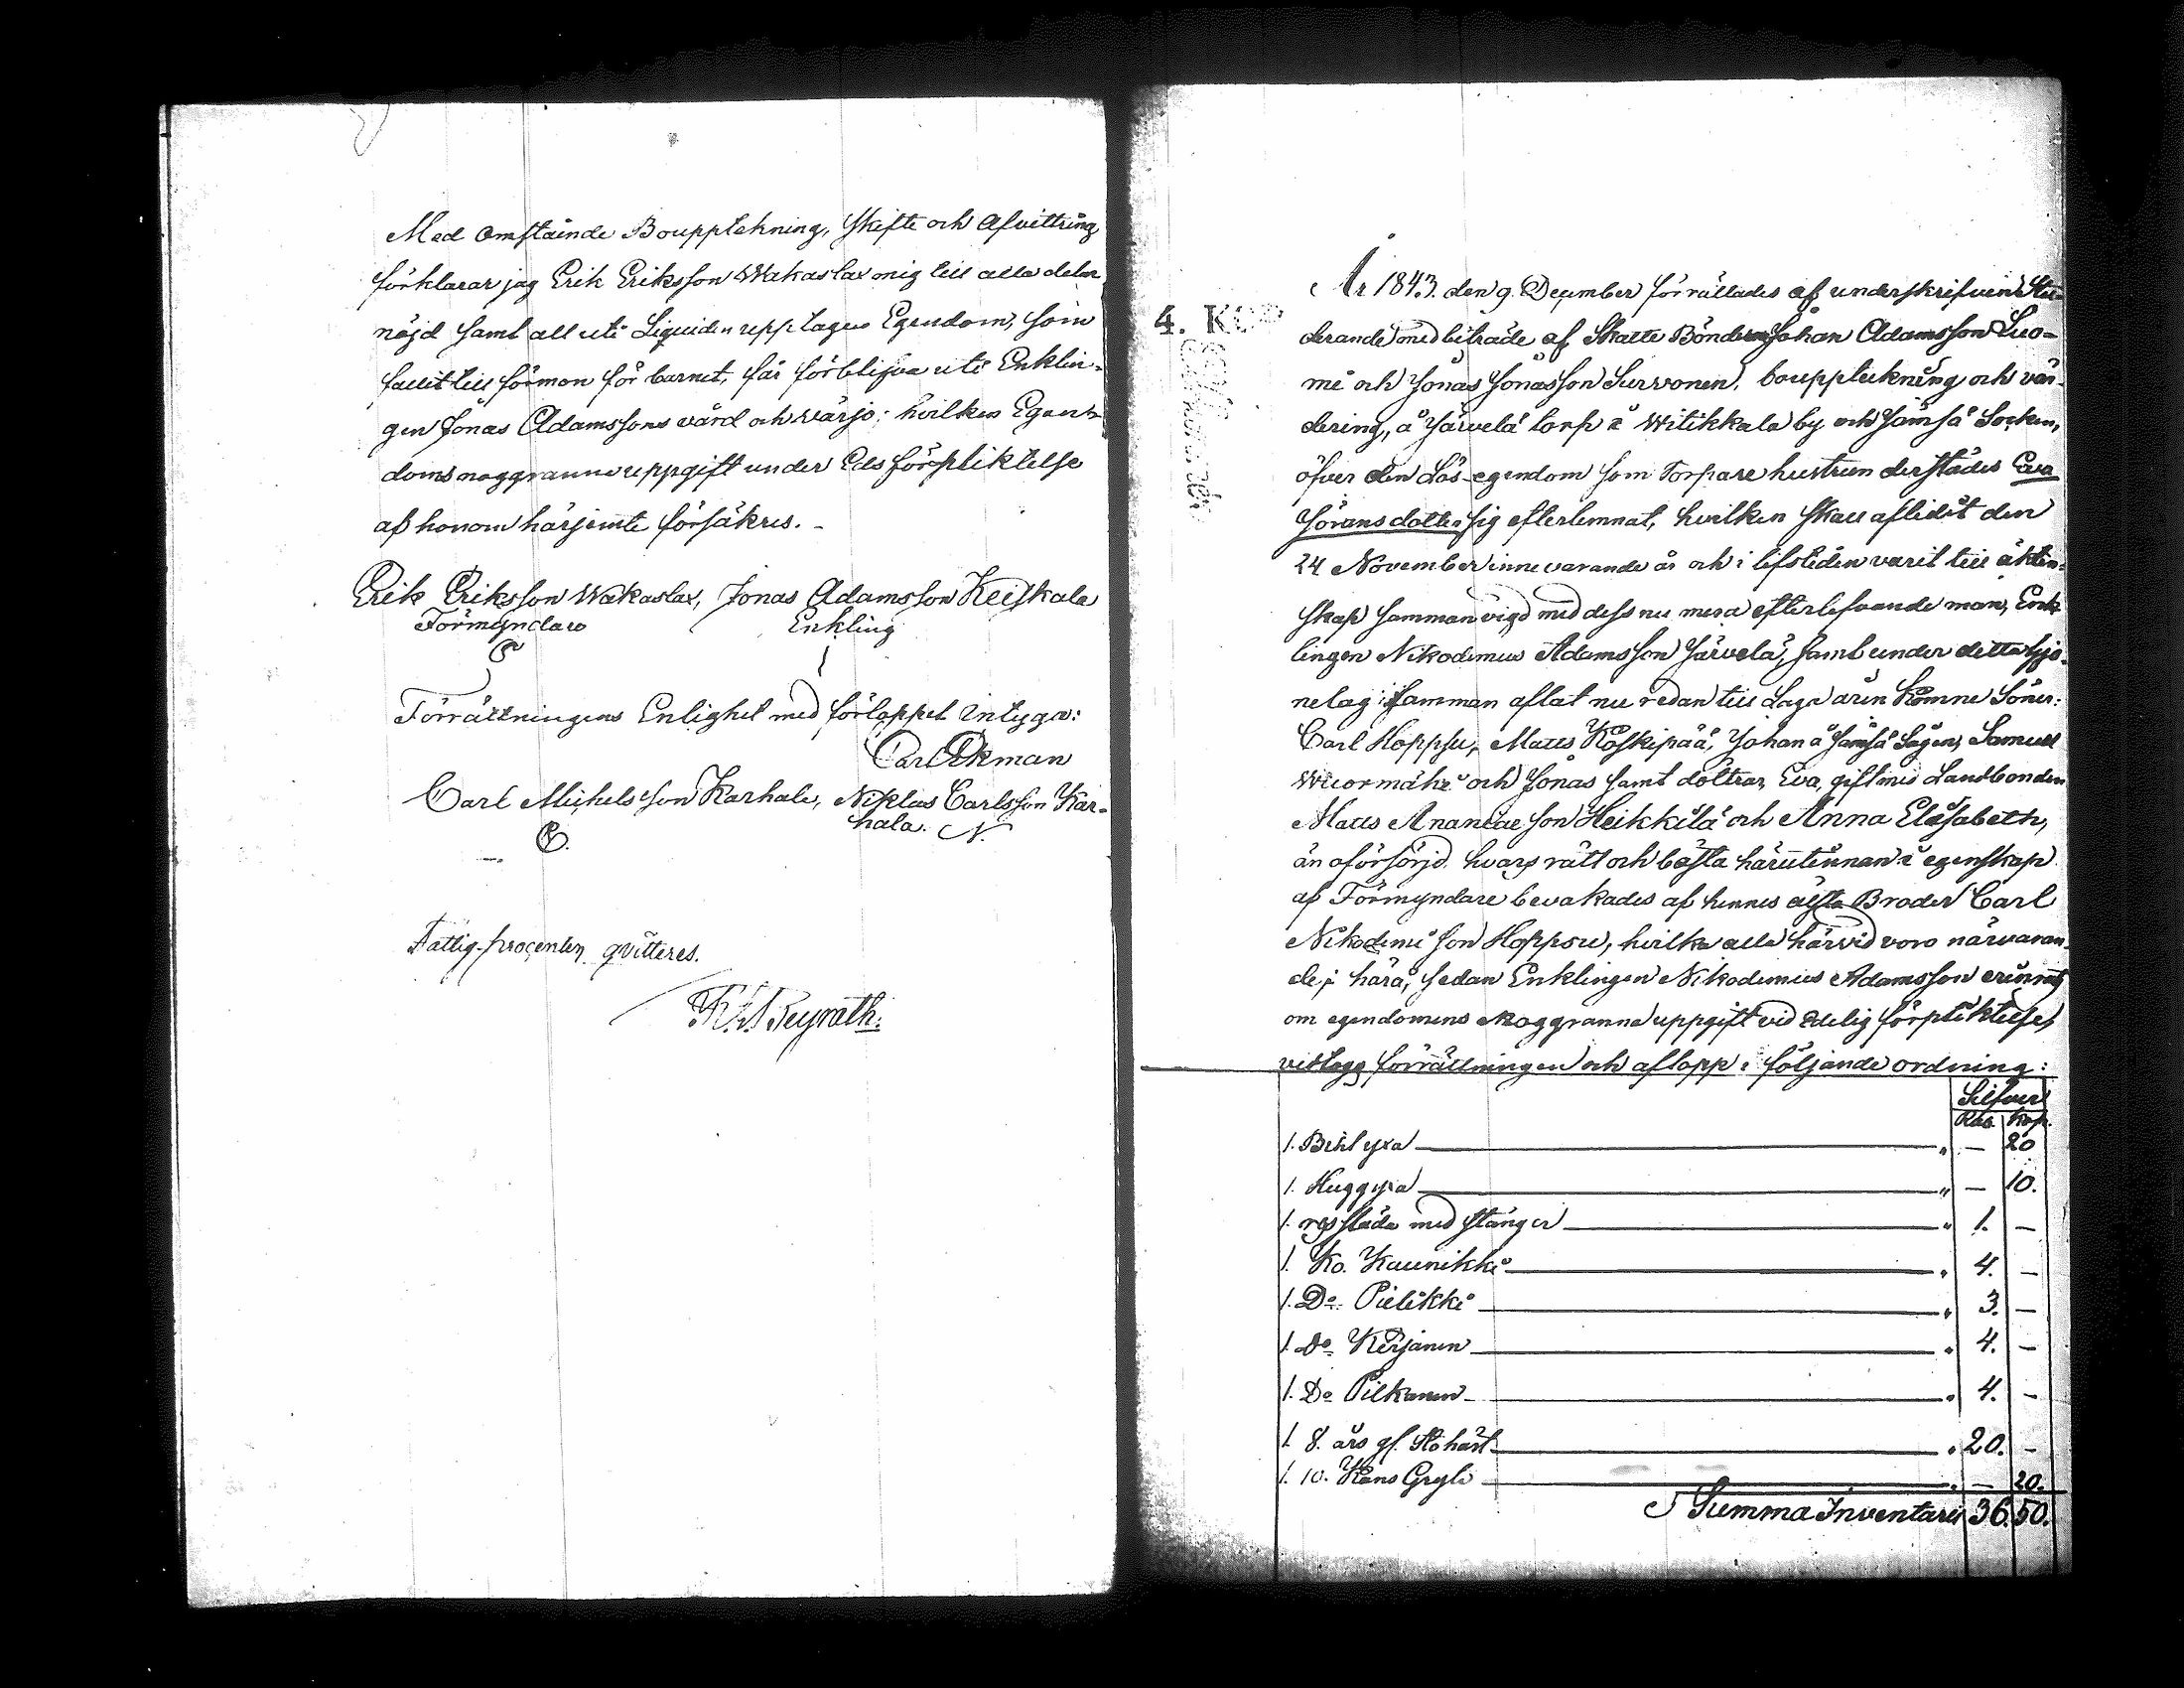 Med omstående Boupptekning, Skifte och Afvittring
förklarar jag Erik Eriksson Wakaslax mig till alla delar
nöjd samt all uti Liquiden upptagen Egendom, som
fallit till förmon för barnet, får förblifva uti Enklin-
gen Jonas Adamssons vård och värjo; hvilken Egen-
doms noggranna uppgift under Eds förpliktelse
af honom härjemte försäkras.
Erik Eriksson Wakaslax, Jonas Adamsson Keiskala
Förmyndare Enkling
Förrättningens Enlighet med förloppet intyga:
Carl Ekman
Carl Michelsson Karhala, Niklas Carlsson Kar-
hala. N.
Fattig-procenten qvitteres.
4. KOP
År 1843. den 9. December förrättades af underskrifven Stu-
derande med biträde af Skatte Bönderne Johan Adamsson Luo-
mi och Jonas Jonasson Survonen, bouppteckning och vär-
dering, å Järvelä torp i Witikkala by och Jämsä Socken,
öfver den Lös-egendom som Torpare hustrun derstädes Eva
Jöransdotter sig efterlemnat, hvilken skall aflidit den
24 November innevarande år och i lifstiden varit till äkten-
skap sammanvigd med dess nu mera efterlefvande man, Enk-
lingen Nikodemus Adamsson Järvelä, samt under detta Hjo-
nelag samman aflat nu redan till Laga åren Komne Söner:
Carl Hoppsu, Matts Koskipää, Johan å Jämsä Sågen, Samuel
Wuorimäki och Jonas samt döttrar, Eva, gift med Landbonden
Matts Ananiaeson Heikkilä och Anna Elisabeth,
än oförsörjd, hvars rätt och bästa härutinnan i egenskap
af Förmyndare bevakades af hennes äldsta Broder Carl
Nikodemison Hoppsu, hvilka alla härvid voro närvaran-
de; härå, sedan Enklingen Nikodemus Adamsson erinrats
om egendomens noggranna uppgift vid Edelig förpliktelse,
vidtogs förrättningen och aflopp i följande ordning:
Silfver
Rub. Kop.
1. Bihlyxa " — 20
1. Huggyxa " — 10.
1. resslada med stänger " 1. —
1. Ko. Kaunikki " 4. —
1. Do. Pielikki " 3. —
1. do. Kirjanen " 4. —
1. Do Pilkanen " 4. —
1. 8. års gl. Stohäst " 20. —
1. 10. Kans Gryta " — 20.
Summa Inventarii 36. 50.